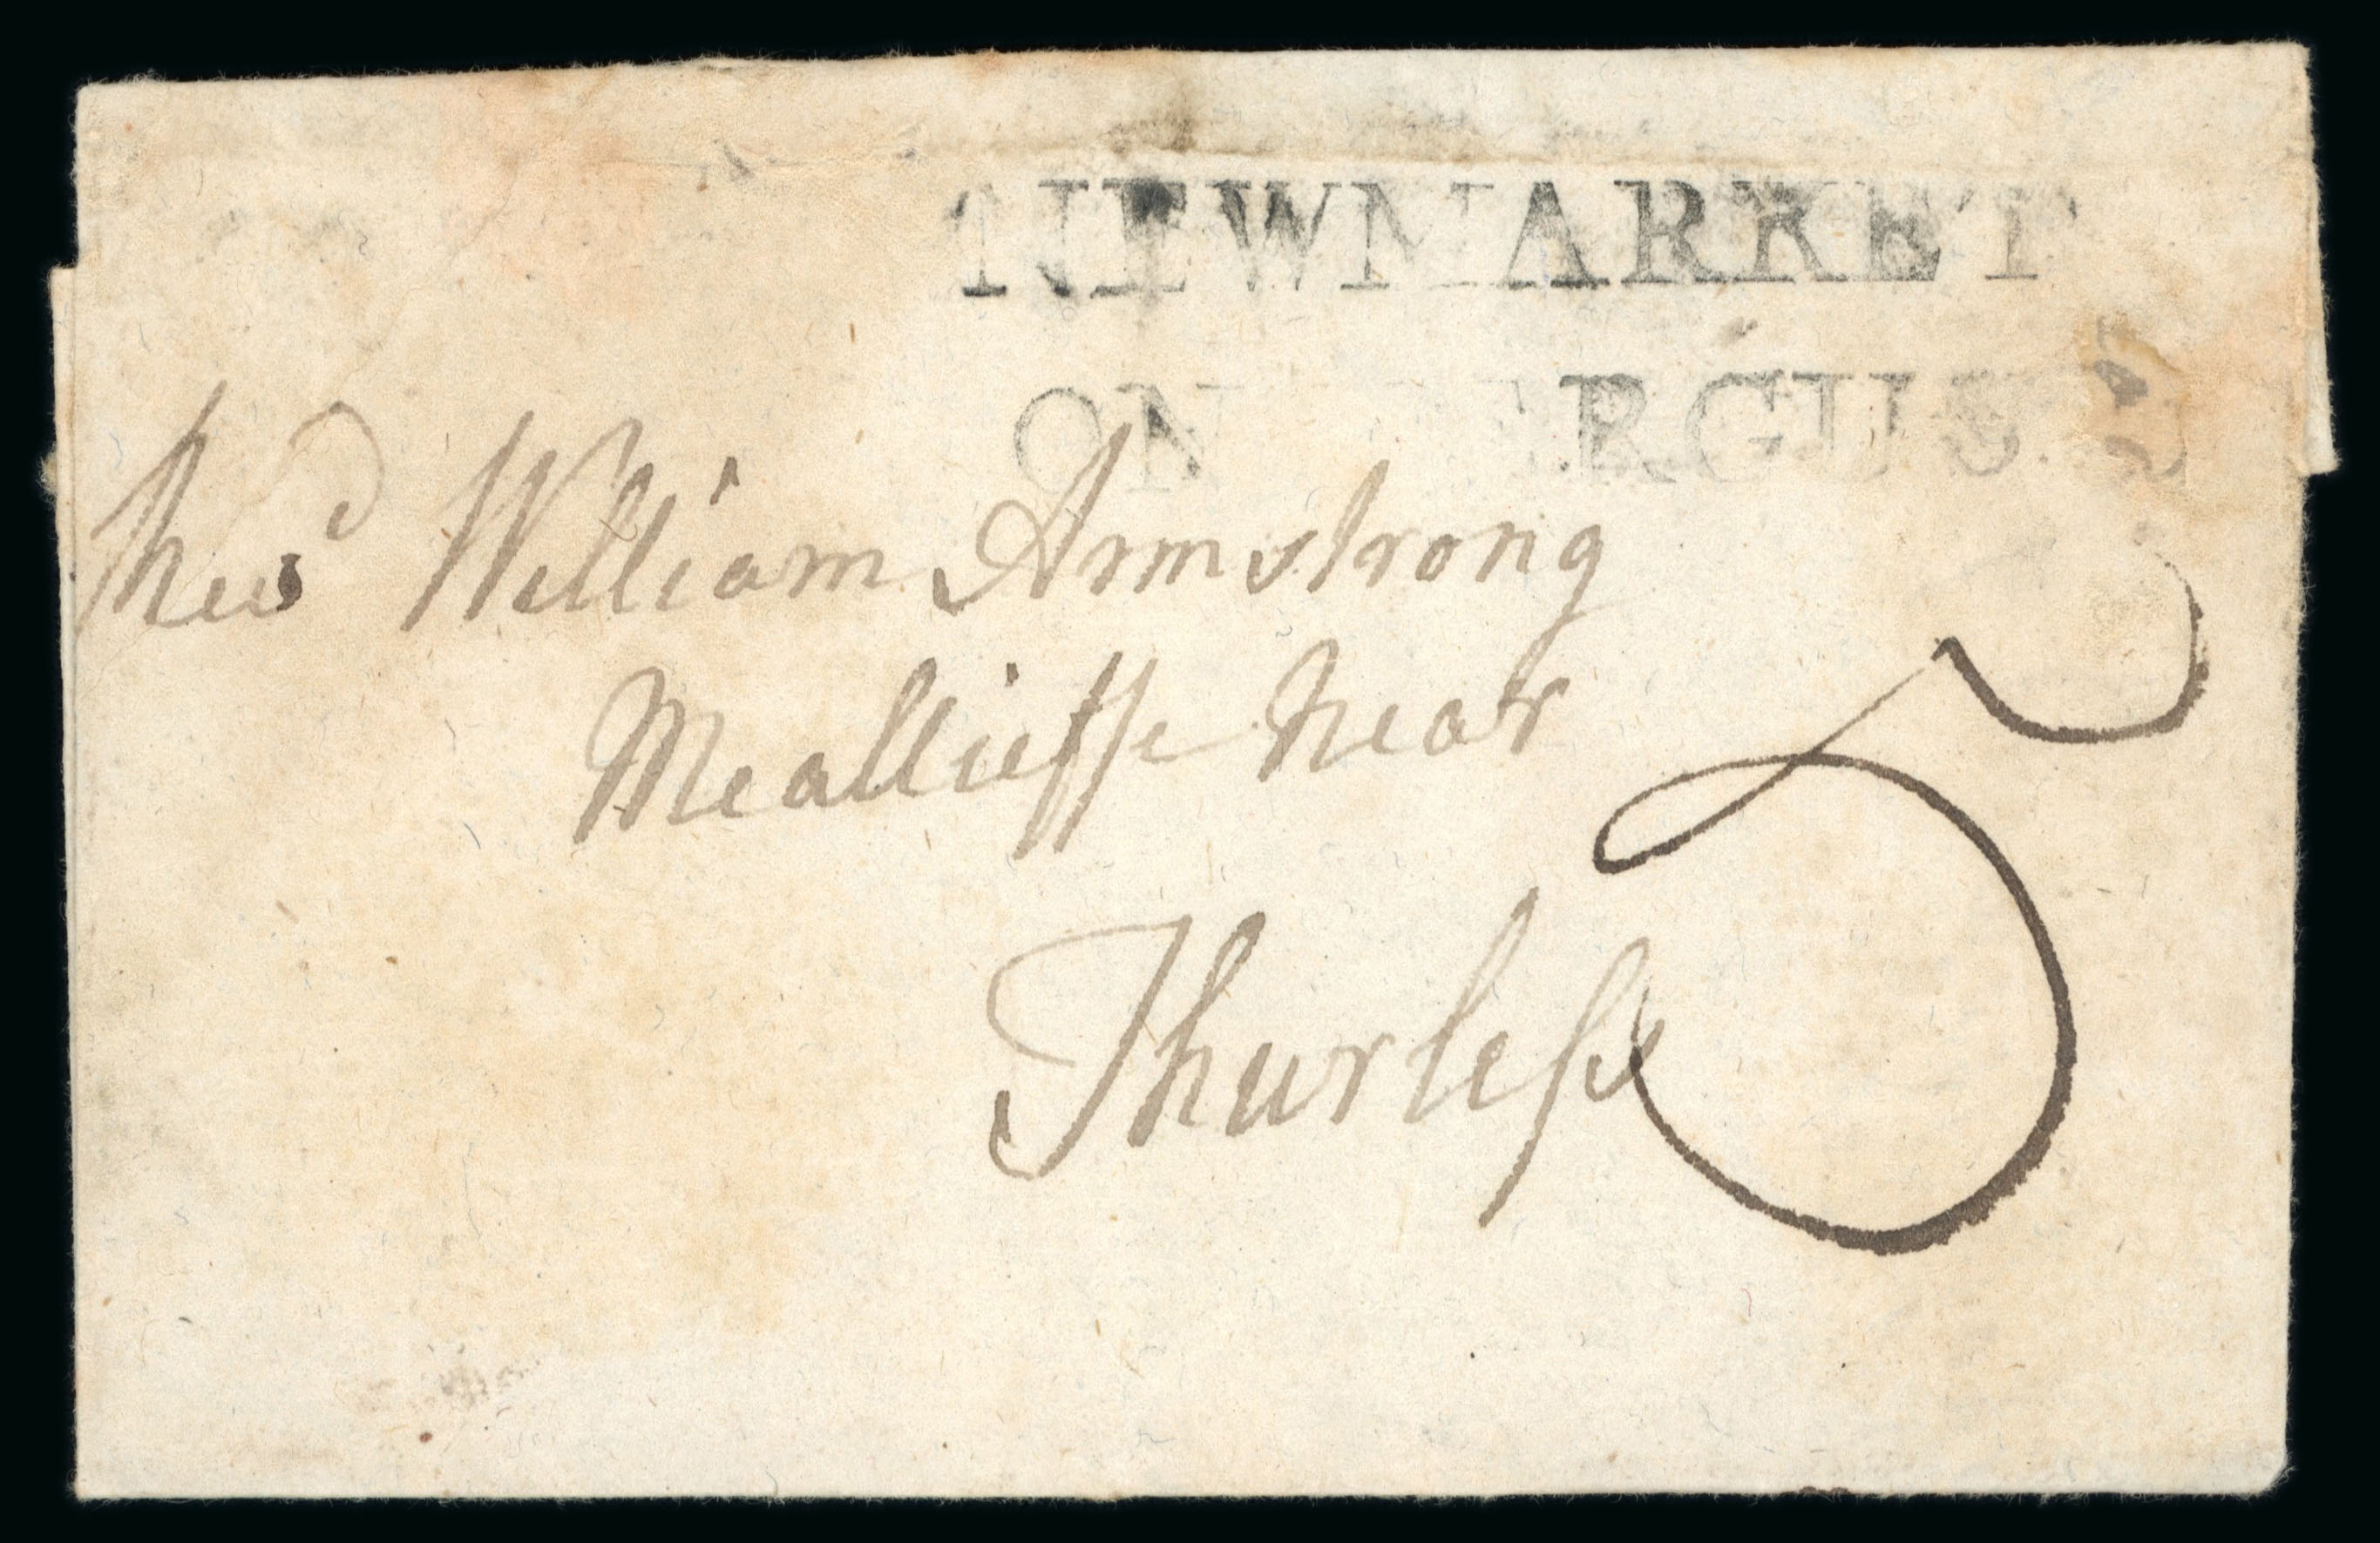 NEWMARKET
ON FERGUS
Revd William Armstrong
Mealliffe Near
Thurless